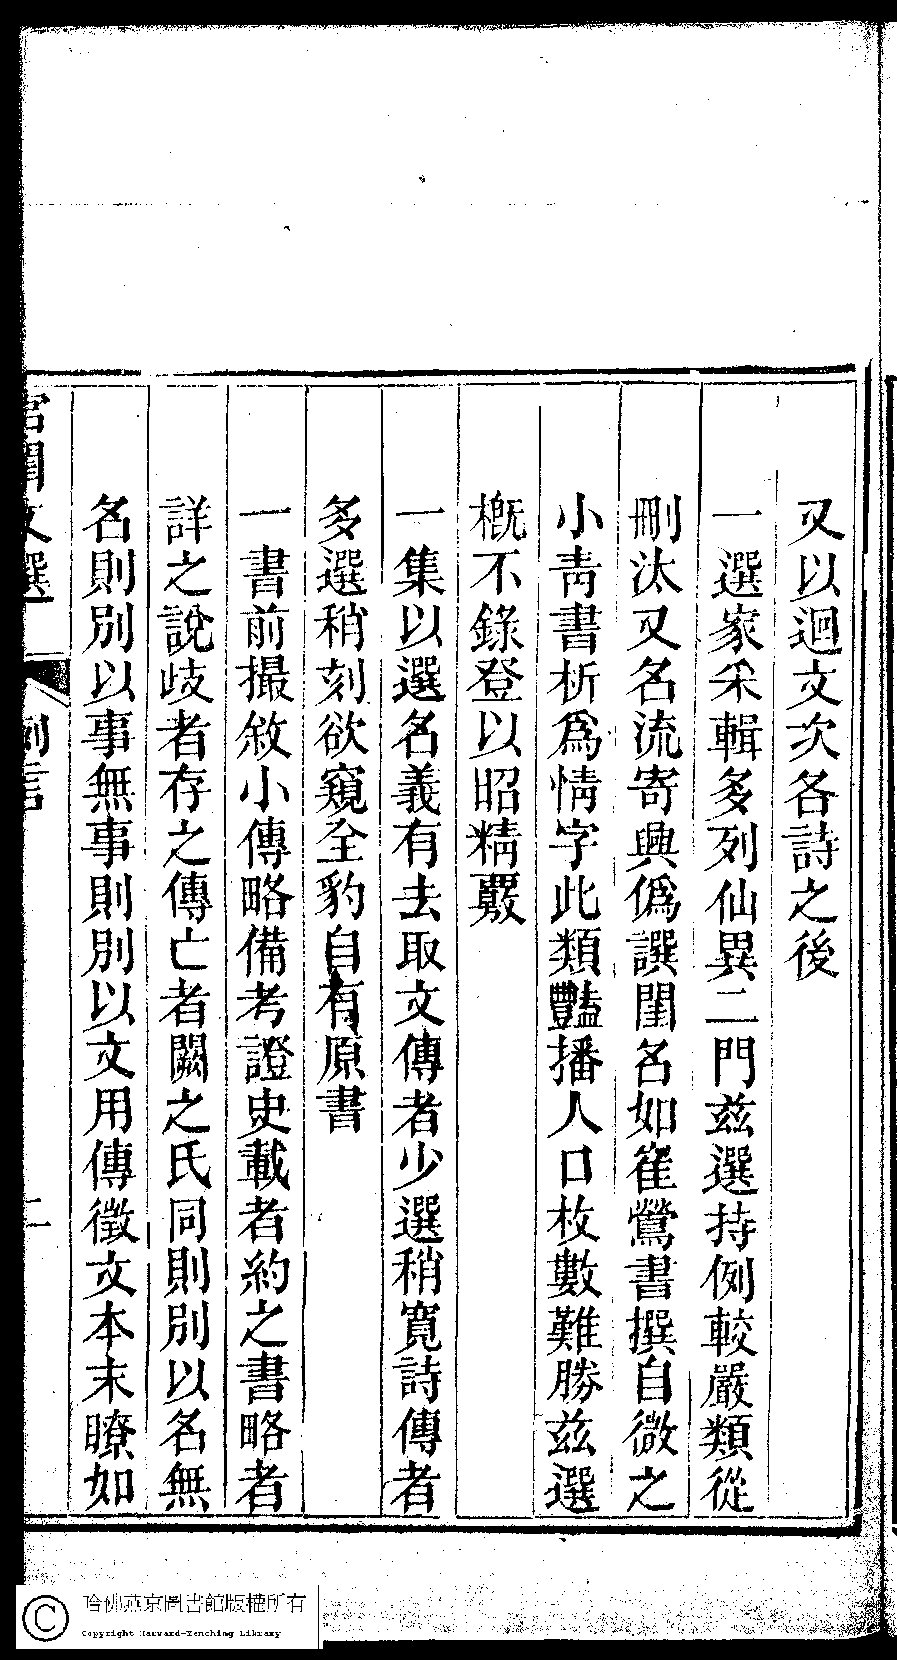 又以迴文次各詩之後
一選家采輯多列仙異二門茲選持例較嚴類從
刪汰又名流寄興僞譔閨名如崔鶯書撰自微之
小靑書析爲情字此類豔播人口枚數難勝茲選
槪不錄登以昭精覈
一集以選名義有去取文傳者少選稍寬詩傳者
多選稍刻欲窺全豹自有原書
一書前撮敘小傳略備考證史載者約之書略者
詳之說歧者存之傳亡者闕之氏同則別以名無
名則別以事無事則別以文用傳徵文本末瞭如
宮閨文選 例言 二
哈佛燕京圖書館版權所有
Copyright Harvard-Yenching Library